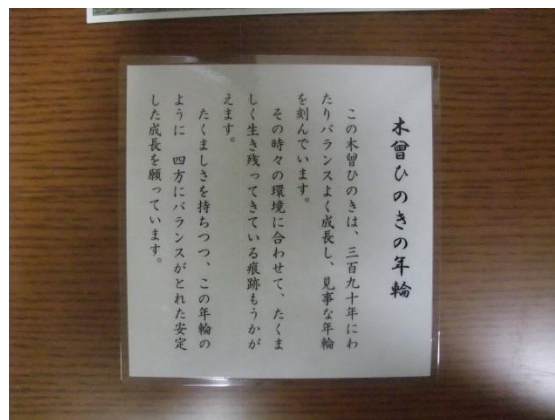 木曾ひのきの年輪
この木曾ひのきは、三百九十年にわ
たりバランスよく成長し、見事な年輪
を刻んでいます。
その時々の環境に合わせて、たくま
しく生き残ってきている痕跡もうかが
えます。
たくましさを持ちつつ、この年輪の
ように 四方にバランスがとれた安定
した成長を願っています。